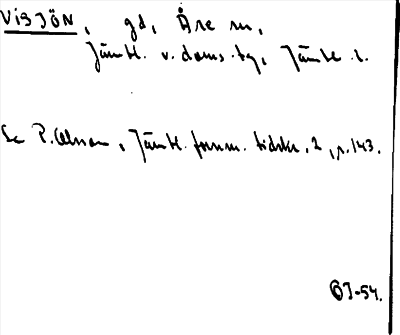 VISJÖN, gd, Åre sn,
Jämtl. v. doms. tg, Jämtl. l.
Se P. Olsson, Jämtl. fornm. tidskr. 2, s. 143.
OJ-54.